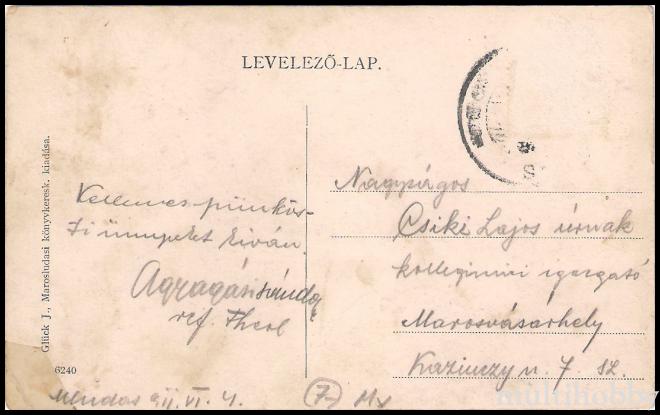 LEVELEZŐ-LAP.
Glück J., Marosludasi könyvkeresk. kiadása.
6240
Kellemes pünkös-
di ünnepet kiván
Sándor
ref.
911. VI. 4.
7
Nagyságos
Csiki Lajos úrnak
kollegiumi igazgató
Marosvásárhely
Kazinczy u. 7 sz.
multihobby